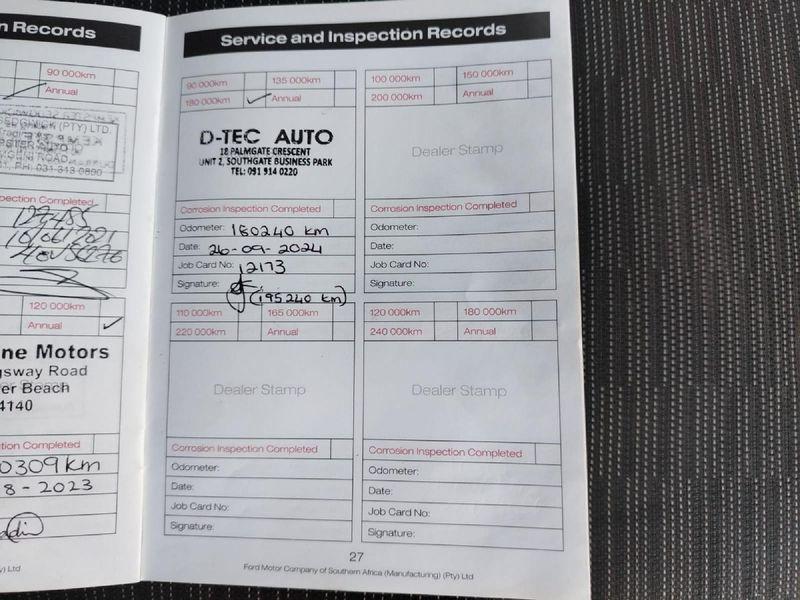 n Records
90 000km
Annual
SEDGWICK (PTY) LTD.
ROAD,
PH: 031 313 0800
spection Completed
127485
10/06/2021
120 000km
Annual
ne Motors
gsway Road
er Beach
4140
tion Completed
0309 km
8 - 2023
y) Ltd
Service and Inspection Records
90 000km 135 000km
180 000km Annual
D-TEC AUTO
18 PALMGATE CRESCENT
UNIT 2, SOUTHGATE BUSINESS PARK
TEL: 031 914 0220
Corrosion Inspection Completed
Odometer: 180240 km
Date: 26-09-2024
Job Card No: 12173
Signature:
(195240 km)
100 000km 150 000km
200 000km Annual
Dealer Stamp
Corrosion Inspection Completed
Odometer:
Date:
Job Card No:
Signature:
110 000km 165 000km
220 000km Annual
Dealer Stamp
Corrosion Inspection Completed
Odometer:
Date:
Job Card No:
Signature:
120 000km 180 000km
240 000km Annual
Dealer Stamp
Corrosion Inspection Completed
Odometer:
Date:
Job Card No:
Signature:
27
Ford Motor Company of Southern Africa (Manufacturing) (Pty) Ltd